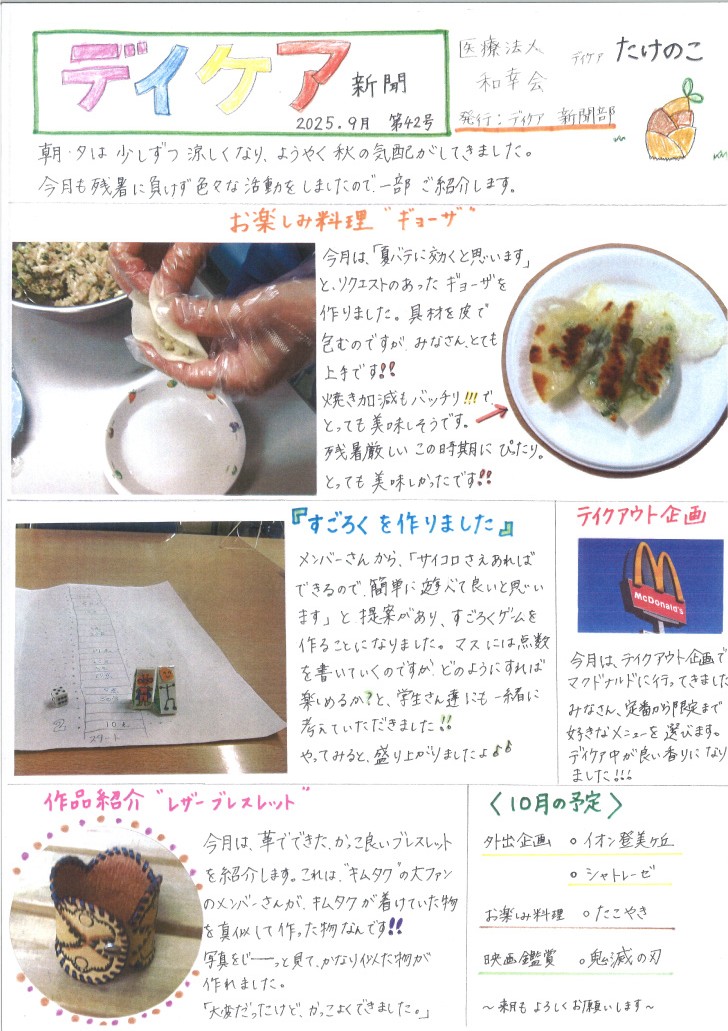 デイケア新聞
2025.9月 第42号
医療法人
和幸会
デイケア たけのこ
発行:デイケア 新聞部
朝・夕は少しずつ涼しくなり、ようやく秋の気配がしてきました。
今月も残暑に負けず色々な活動をしましたので、一部ご紹介します。
お楽しみ料理 "ギョーザ"
今月は、「夏バテに効くと思います」
と、リクエストのあった ギョーザを
作りました。具材を皮で
包むのですが みなさん、とても
上手です!!
焼き加減もバッチリ!!!で
とっても美味しそうです。
残暑厳しい この時期に ぴたり。
とっても 美味しかったです!!
『すごろくを作りました』
メンバーさんから、「サイコロさえあれば
できるので、簡単に遊べて良いと思い
ます」と 提案があり、すごろくゲームを
作ることになりました。マスには点数
を書いていくのですが、どのようにすれば
楽しめるか?と、学生さん達にも一緒に
考えていただきました!!
やってみると、盛り上がりましたよ♪♪
10点
スタート
テイクアウト企画
McDonald's
今月は、テイクアウト企画で
マクドナルドに行ってきました
みなさん、定番から限定まで
好きなメニューを選びます。
デイケア中が良い香りになり
ました!!!
作品紹介 "レザーブレスレット"
今月は、革でできた、かっこ良いブレスレット
を紹介します。これは、"キムタク"の大ファン
のメンバーさんが、キムタクが着けていた物
を真似して作った物なんです!!
写真をじーーっと見て、かなり似た物が
作れました。
「大変だったけど、かっこよくできました。」
〈10月の予定〉
外出企画 ○イオン登美ヶ丘
○シャトレーゼ
お楽しみ料理 ○たこやき
映画鑑賞 ○鬼滅の刃
～来月も よろしくお願いします～